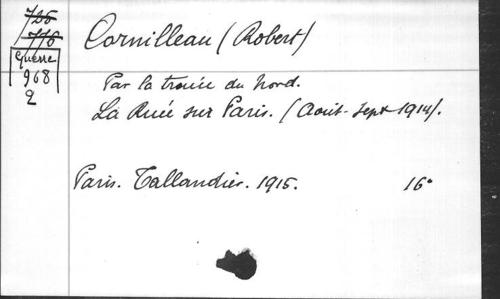 726
778
Guerre
968
2
Cornilleau (Robert)
Par la trouée du Nord.
La Ruée sur Paris. (Août-Sept 1914).
Paris. Tallandier. 1915. 16°